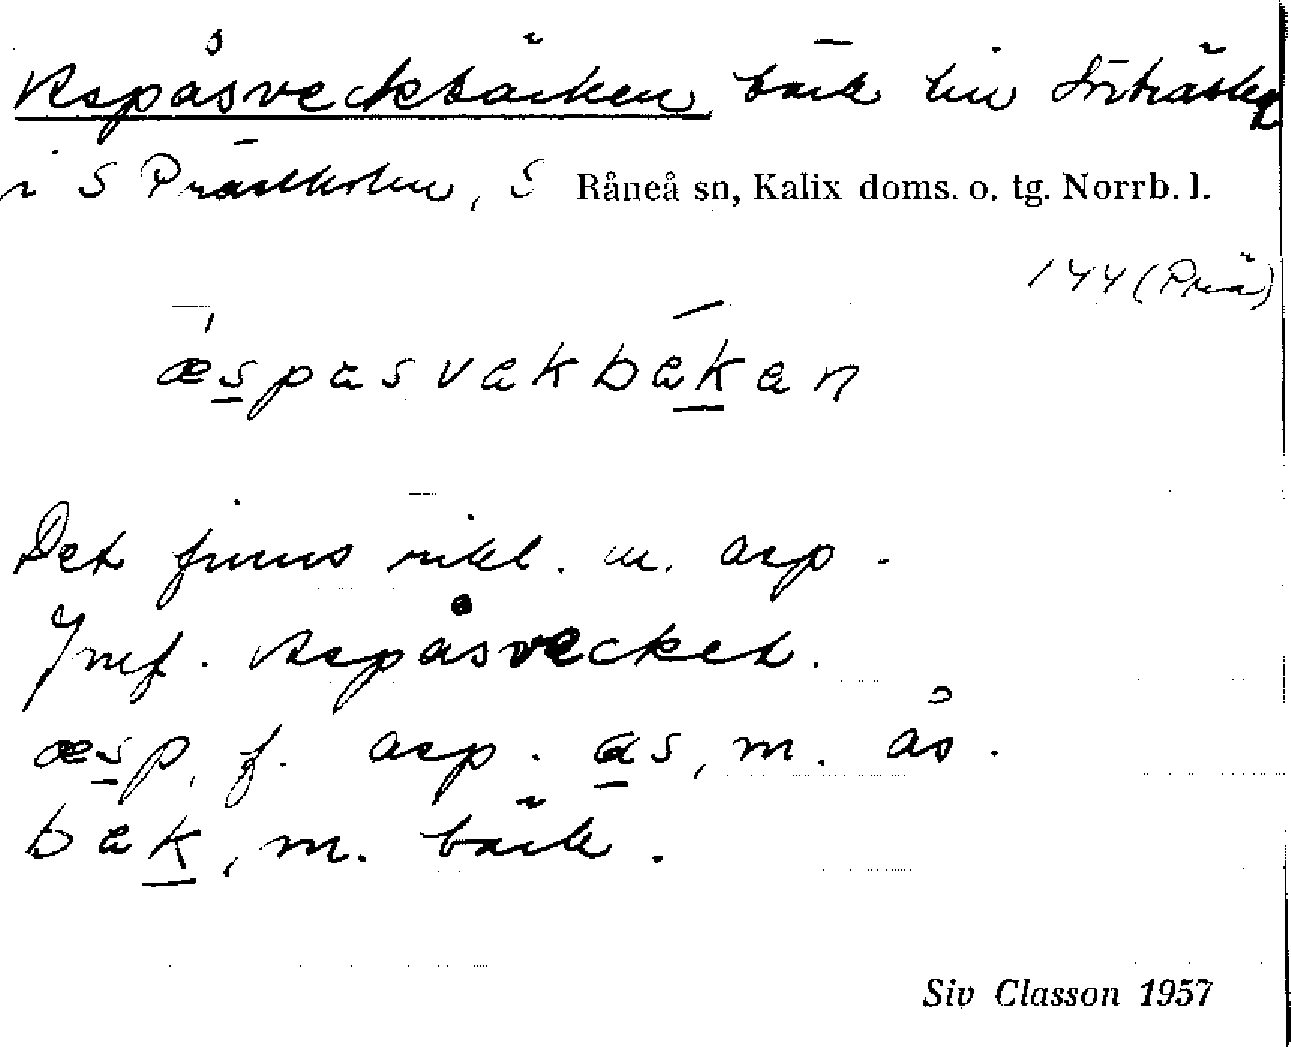 Aspåsveckbäcken bäck till Sörträsket
i S Prästholm, S Råneå sn, Kalix doms. o. tg. Norrb. l.
144 (Prä)
æspasvakbækan
Det finns rikl. m. asp.
Jmf. Aspåsvecket.
æsp, f. asp. as, m. ås.
bæk, m. bäck.
Siv Classon 1957